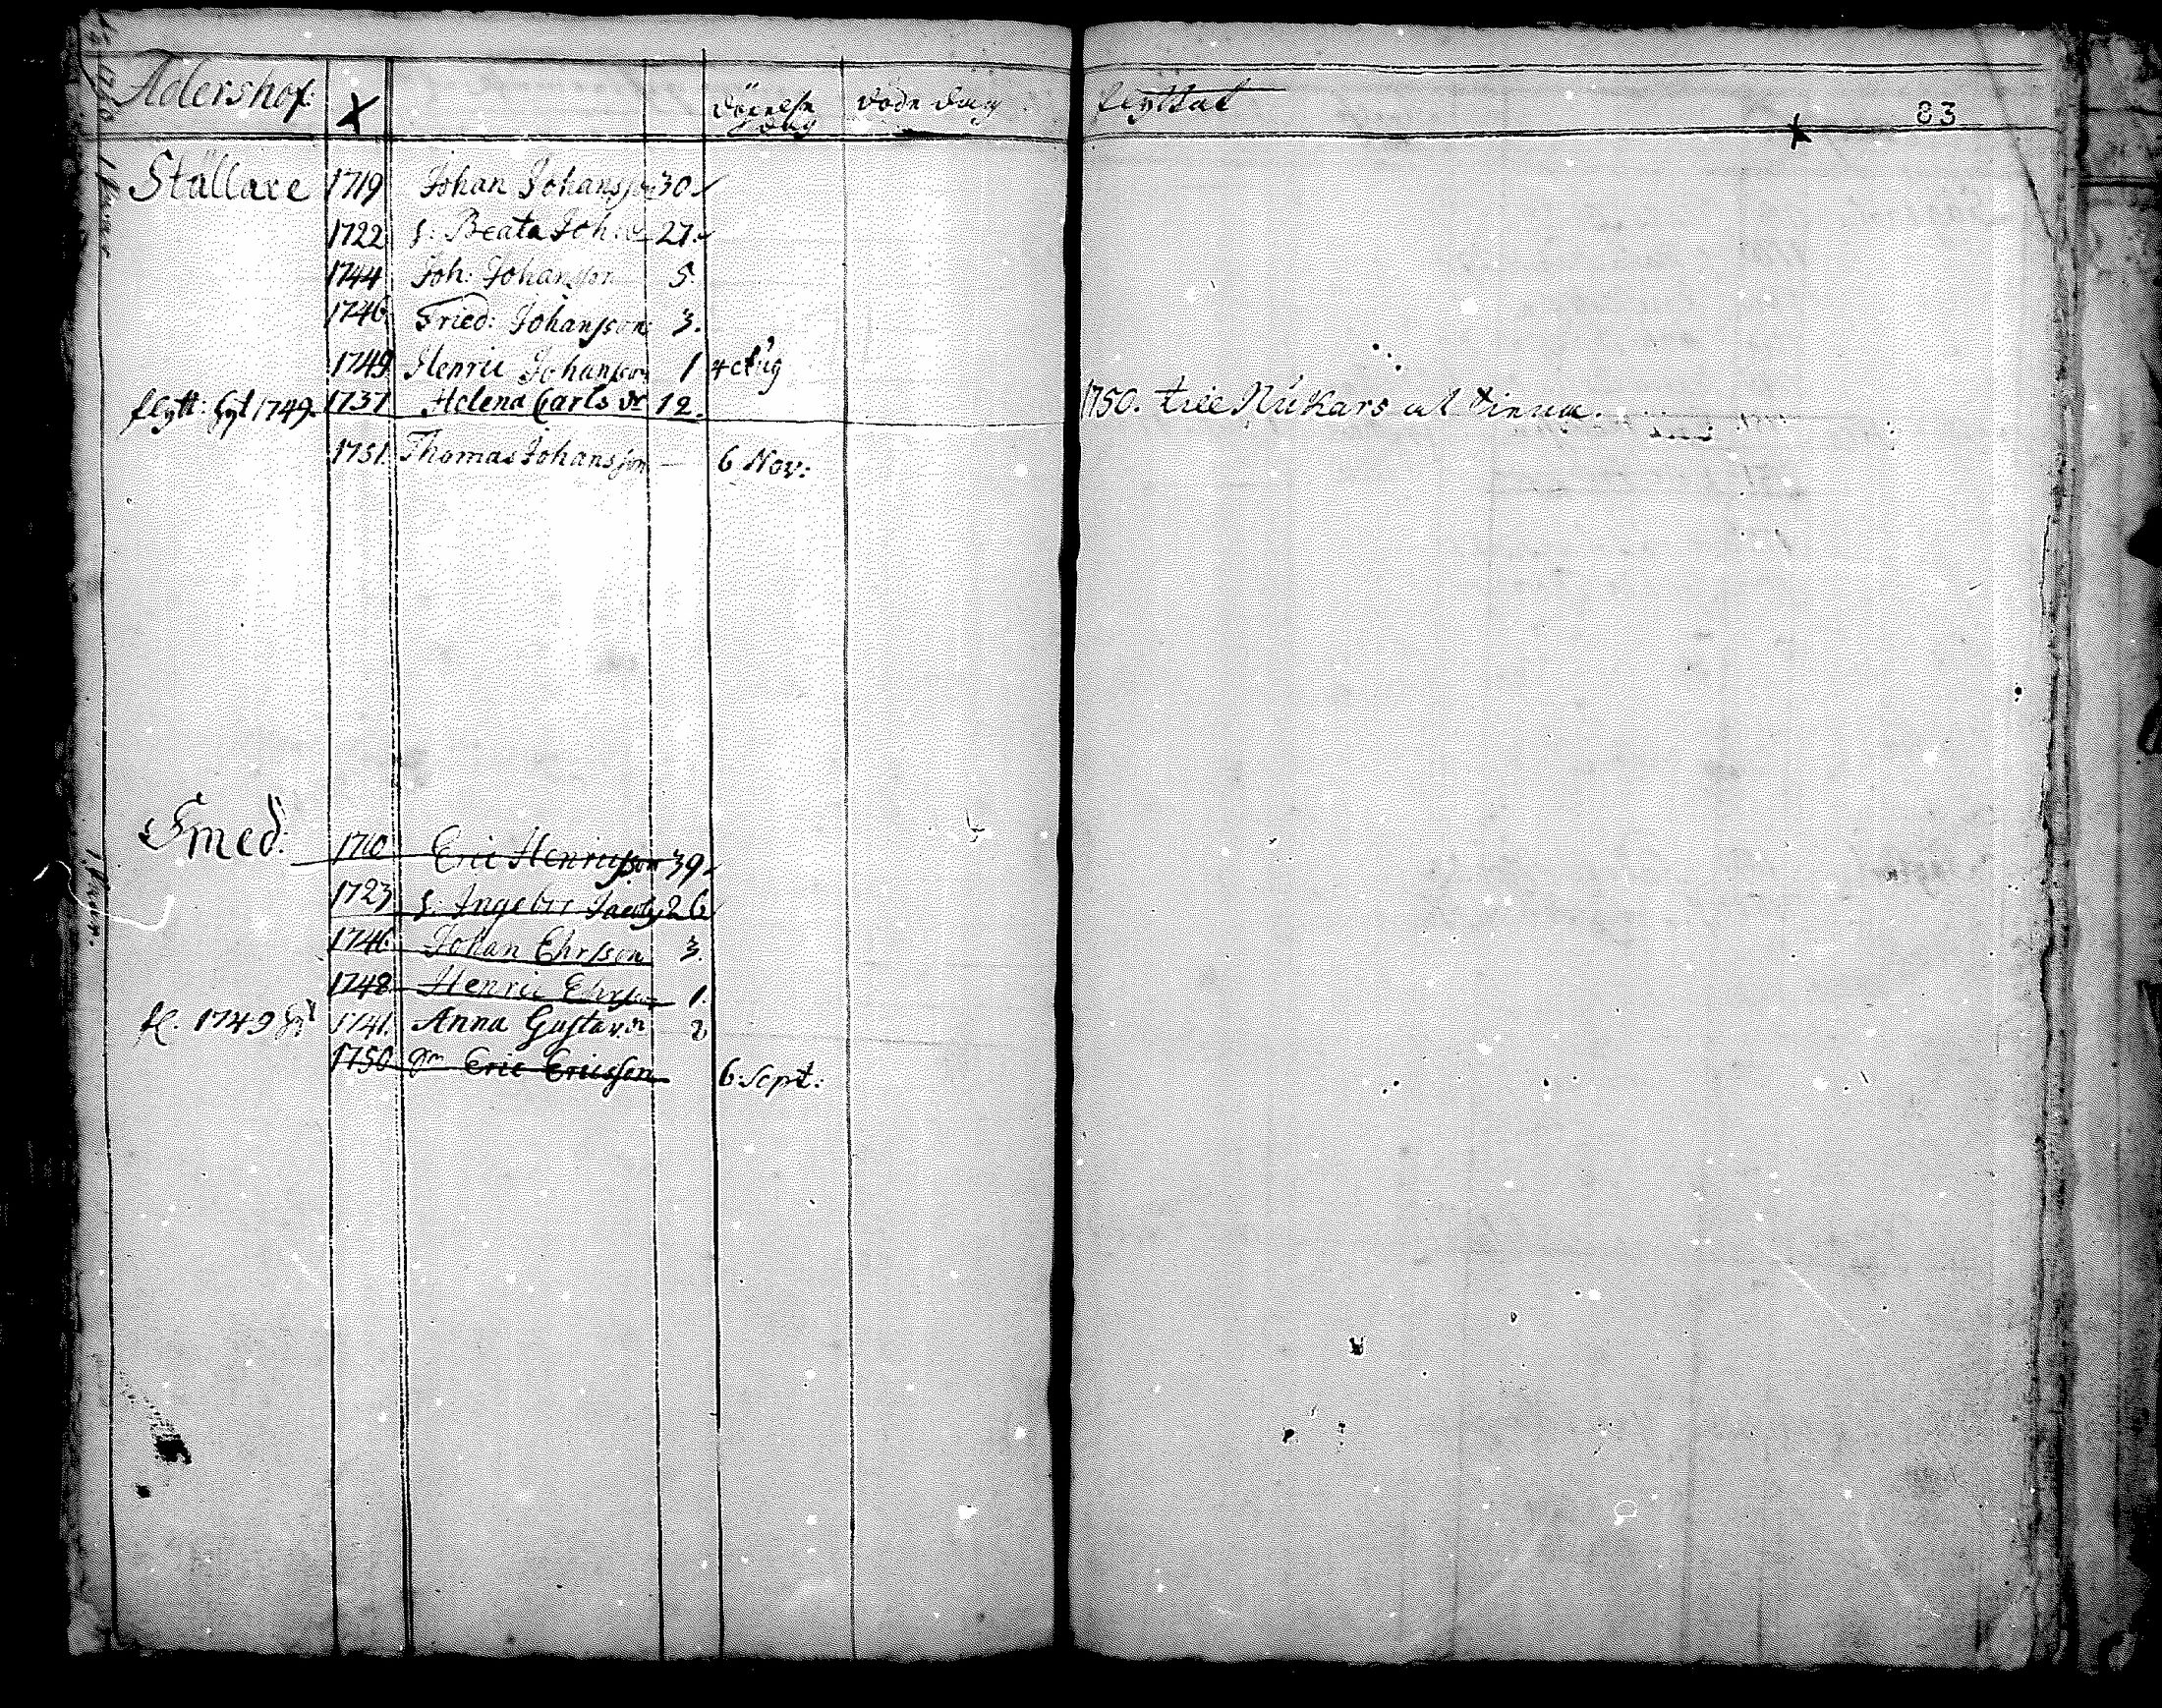 Adershof: X dag döde dag flyttat 83
Stallare 1719 Johan Johansson 30
1722 h. Beata Joh: dr 27.
1744 Joh: Johansson 5
1746. Fried: Johansson 3.
1749 Henric Johansson 1 4 Aug
flytt: 1749. 1737 Helena Carls dr 12. 1750. till Nukars at tiena.
1751. Thomas Johansson — 6 Nov:
Smed:
1710 Eric Henricsson 39
1723 h. Ingebor 26
1746 Johan Ehrsson 3.
1748 Henric Ehrsson 1.
fl. 1749 1741. Anna Gustav dr
1750 Eric Ericsson 6 Sept: